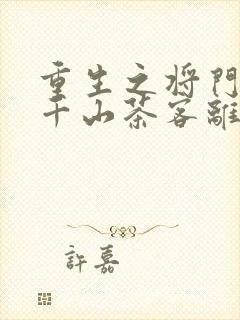 重生之将門
千山茶客離
許嘉